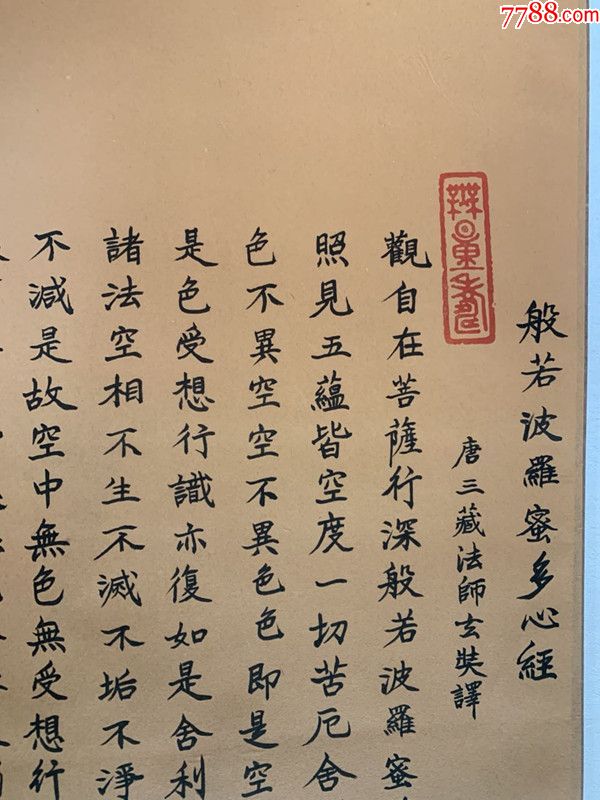 7788.com
般若波羅蜜多心經
唐三藏法師玄奘譯
觀自在菩薩行深般若波羅蜜
照見五蘊皆空度一切苦厄舍
色不異空空不異色色即是空
是色受想行識亦復如是舍利
諸法空相不生不滅不垢不淨
不減是故空中無色無受想行